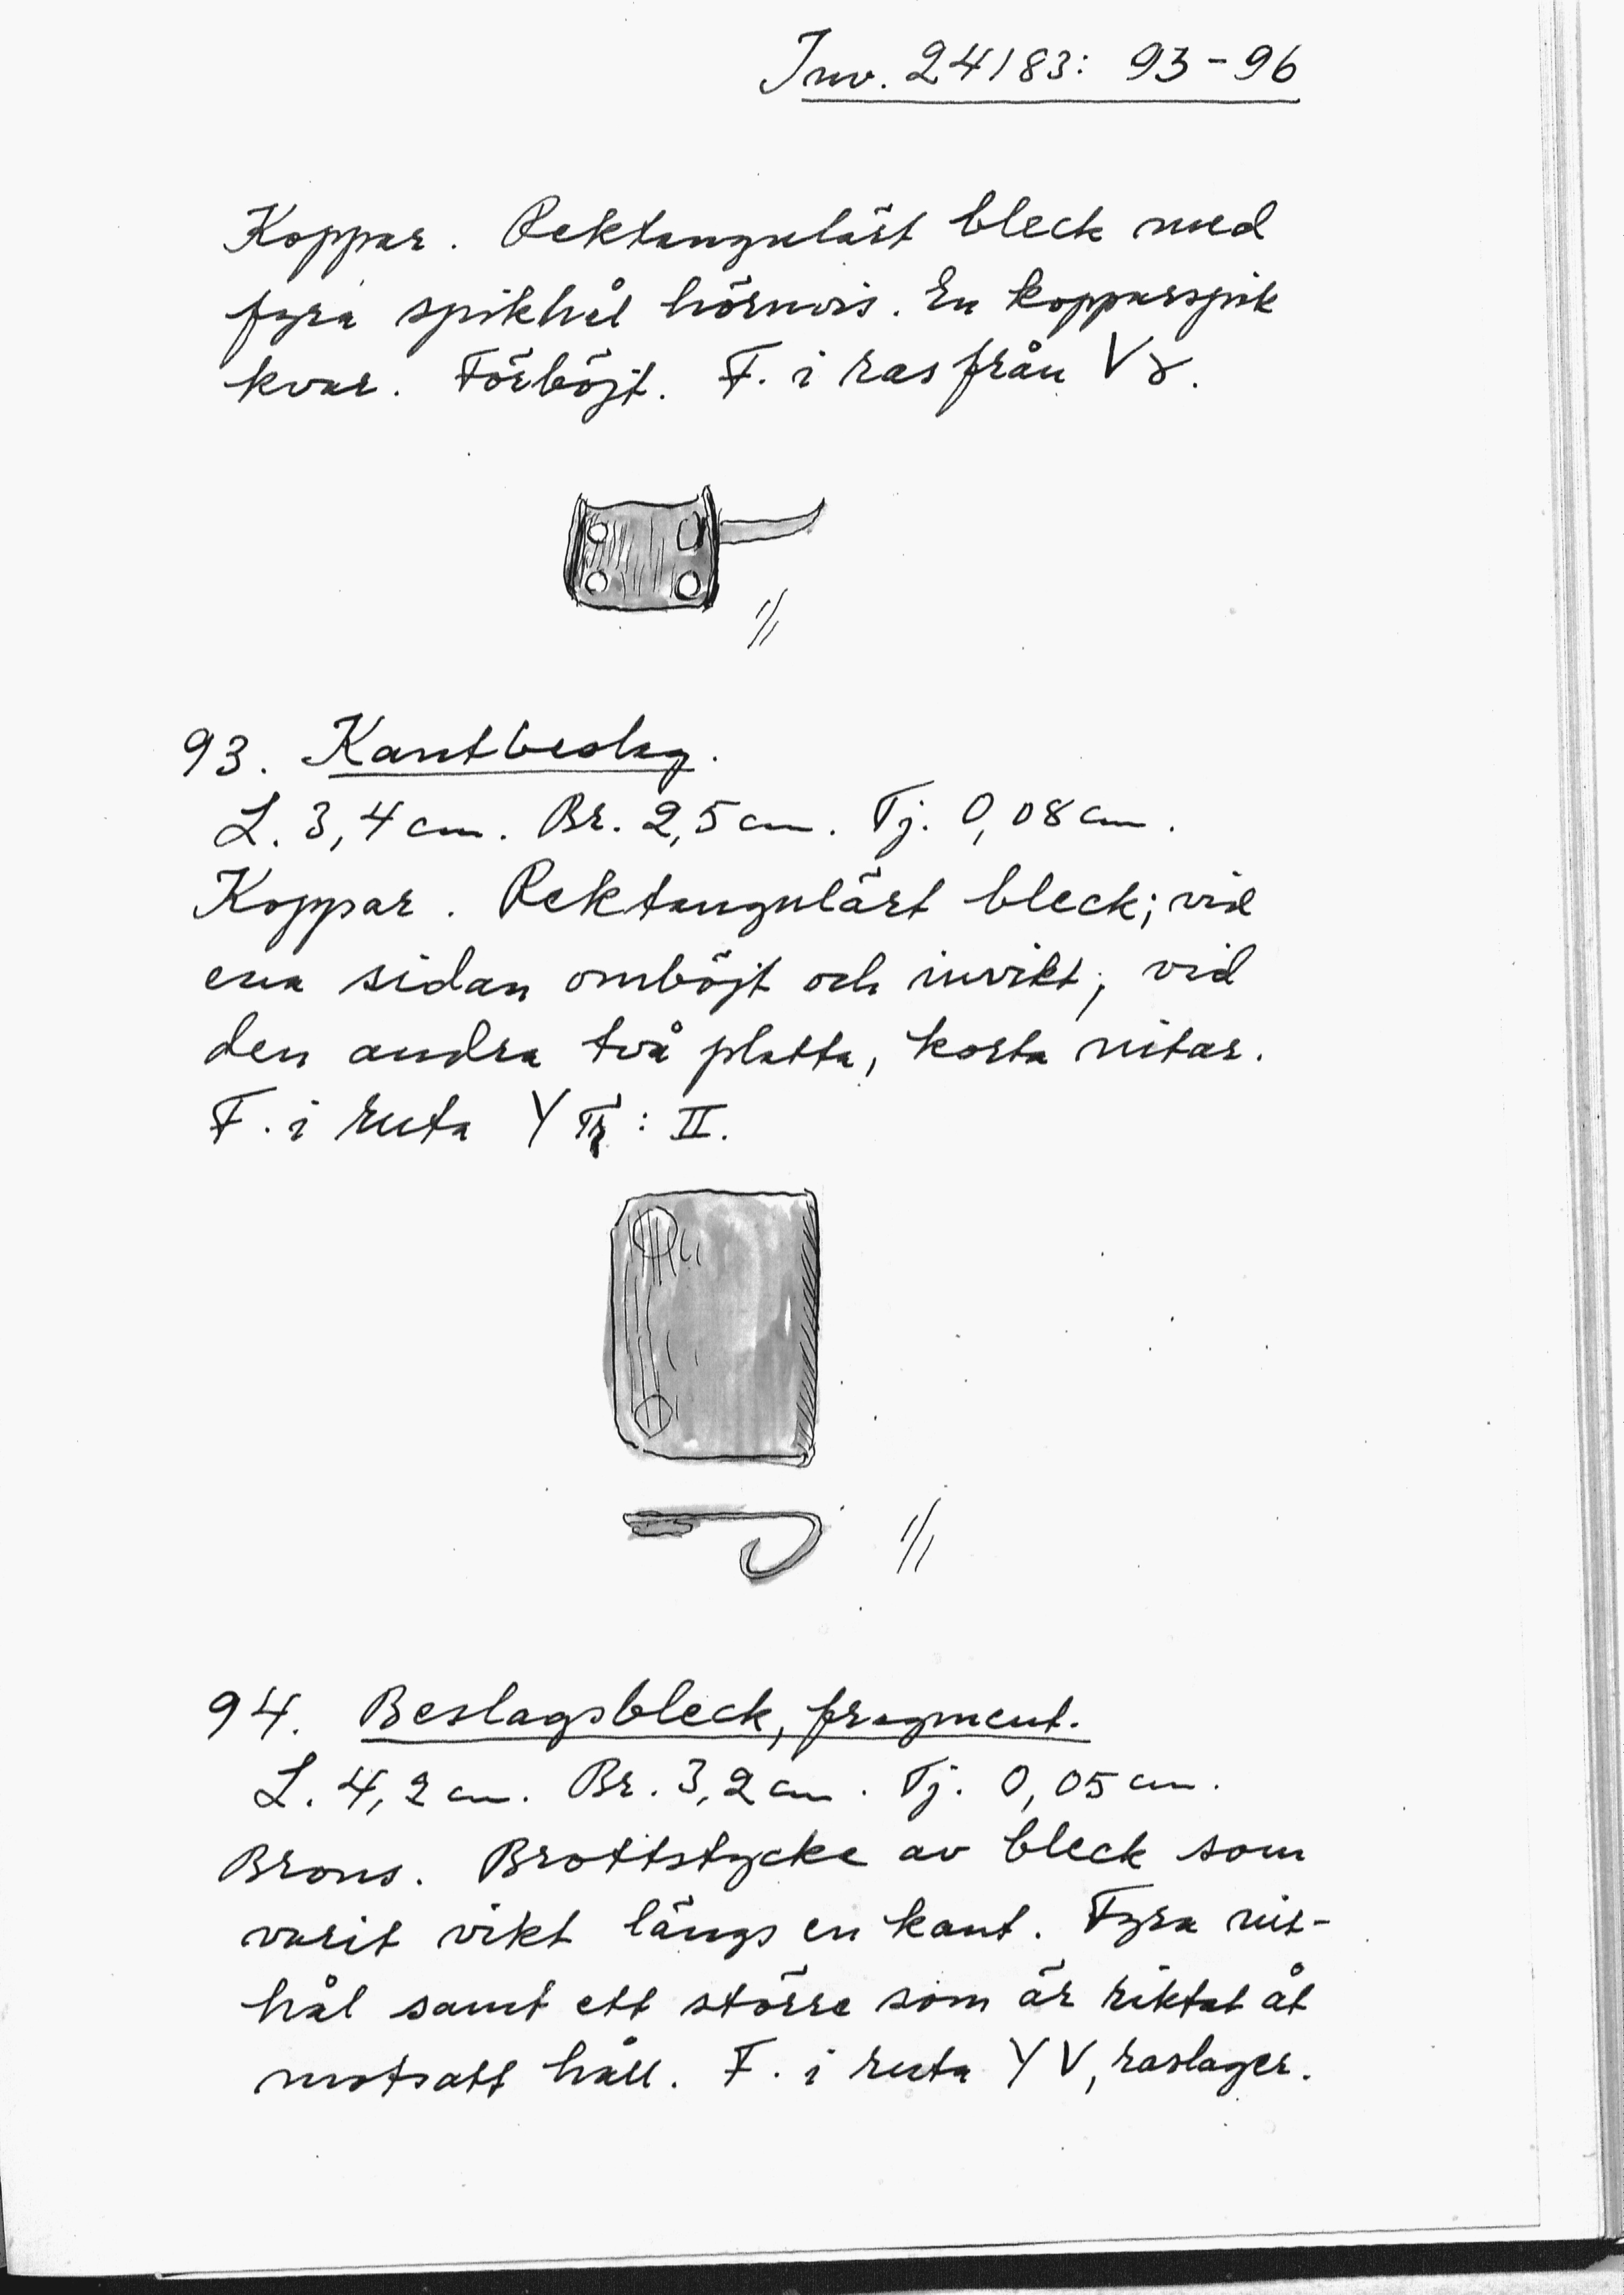 Inv. 24183: 93-96
Koppar. Rektangulärt bleck med
fyra spikhål hörnvis. En kopparspik
kvar. Förböjt. F. i ras från V
1/1
93. Kantbeslag.
L. 3,4 cm. Br. 2,5 cm. Tj. 0,08 cm.
Koppar. Rektangulärt bleck; vid
ena sidan omböjt och invikt; vid
den andra två platta, korta nitar.
F. i ruta Y : II.
1/1
94. Beslagsbleck, fragment.
L. 4,2 cm. Br. 3,2 cm. Tj. 0,05 cm.
Brons. Brottstycke av bleck som
varit vikt längs en kant. Fyra nit-
hål samt ett större som är riktat åt
motsatt håll. F. i ruta Y V, raslager.